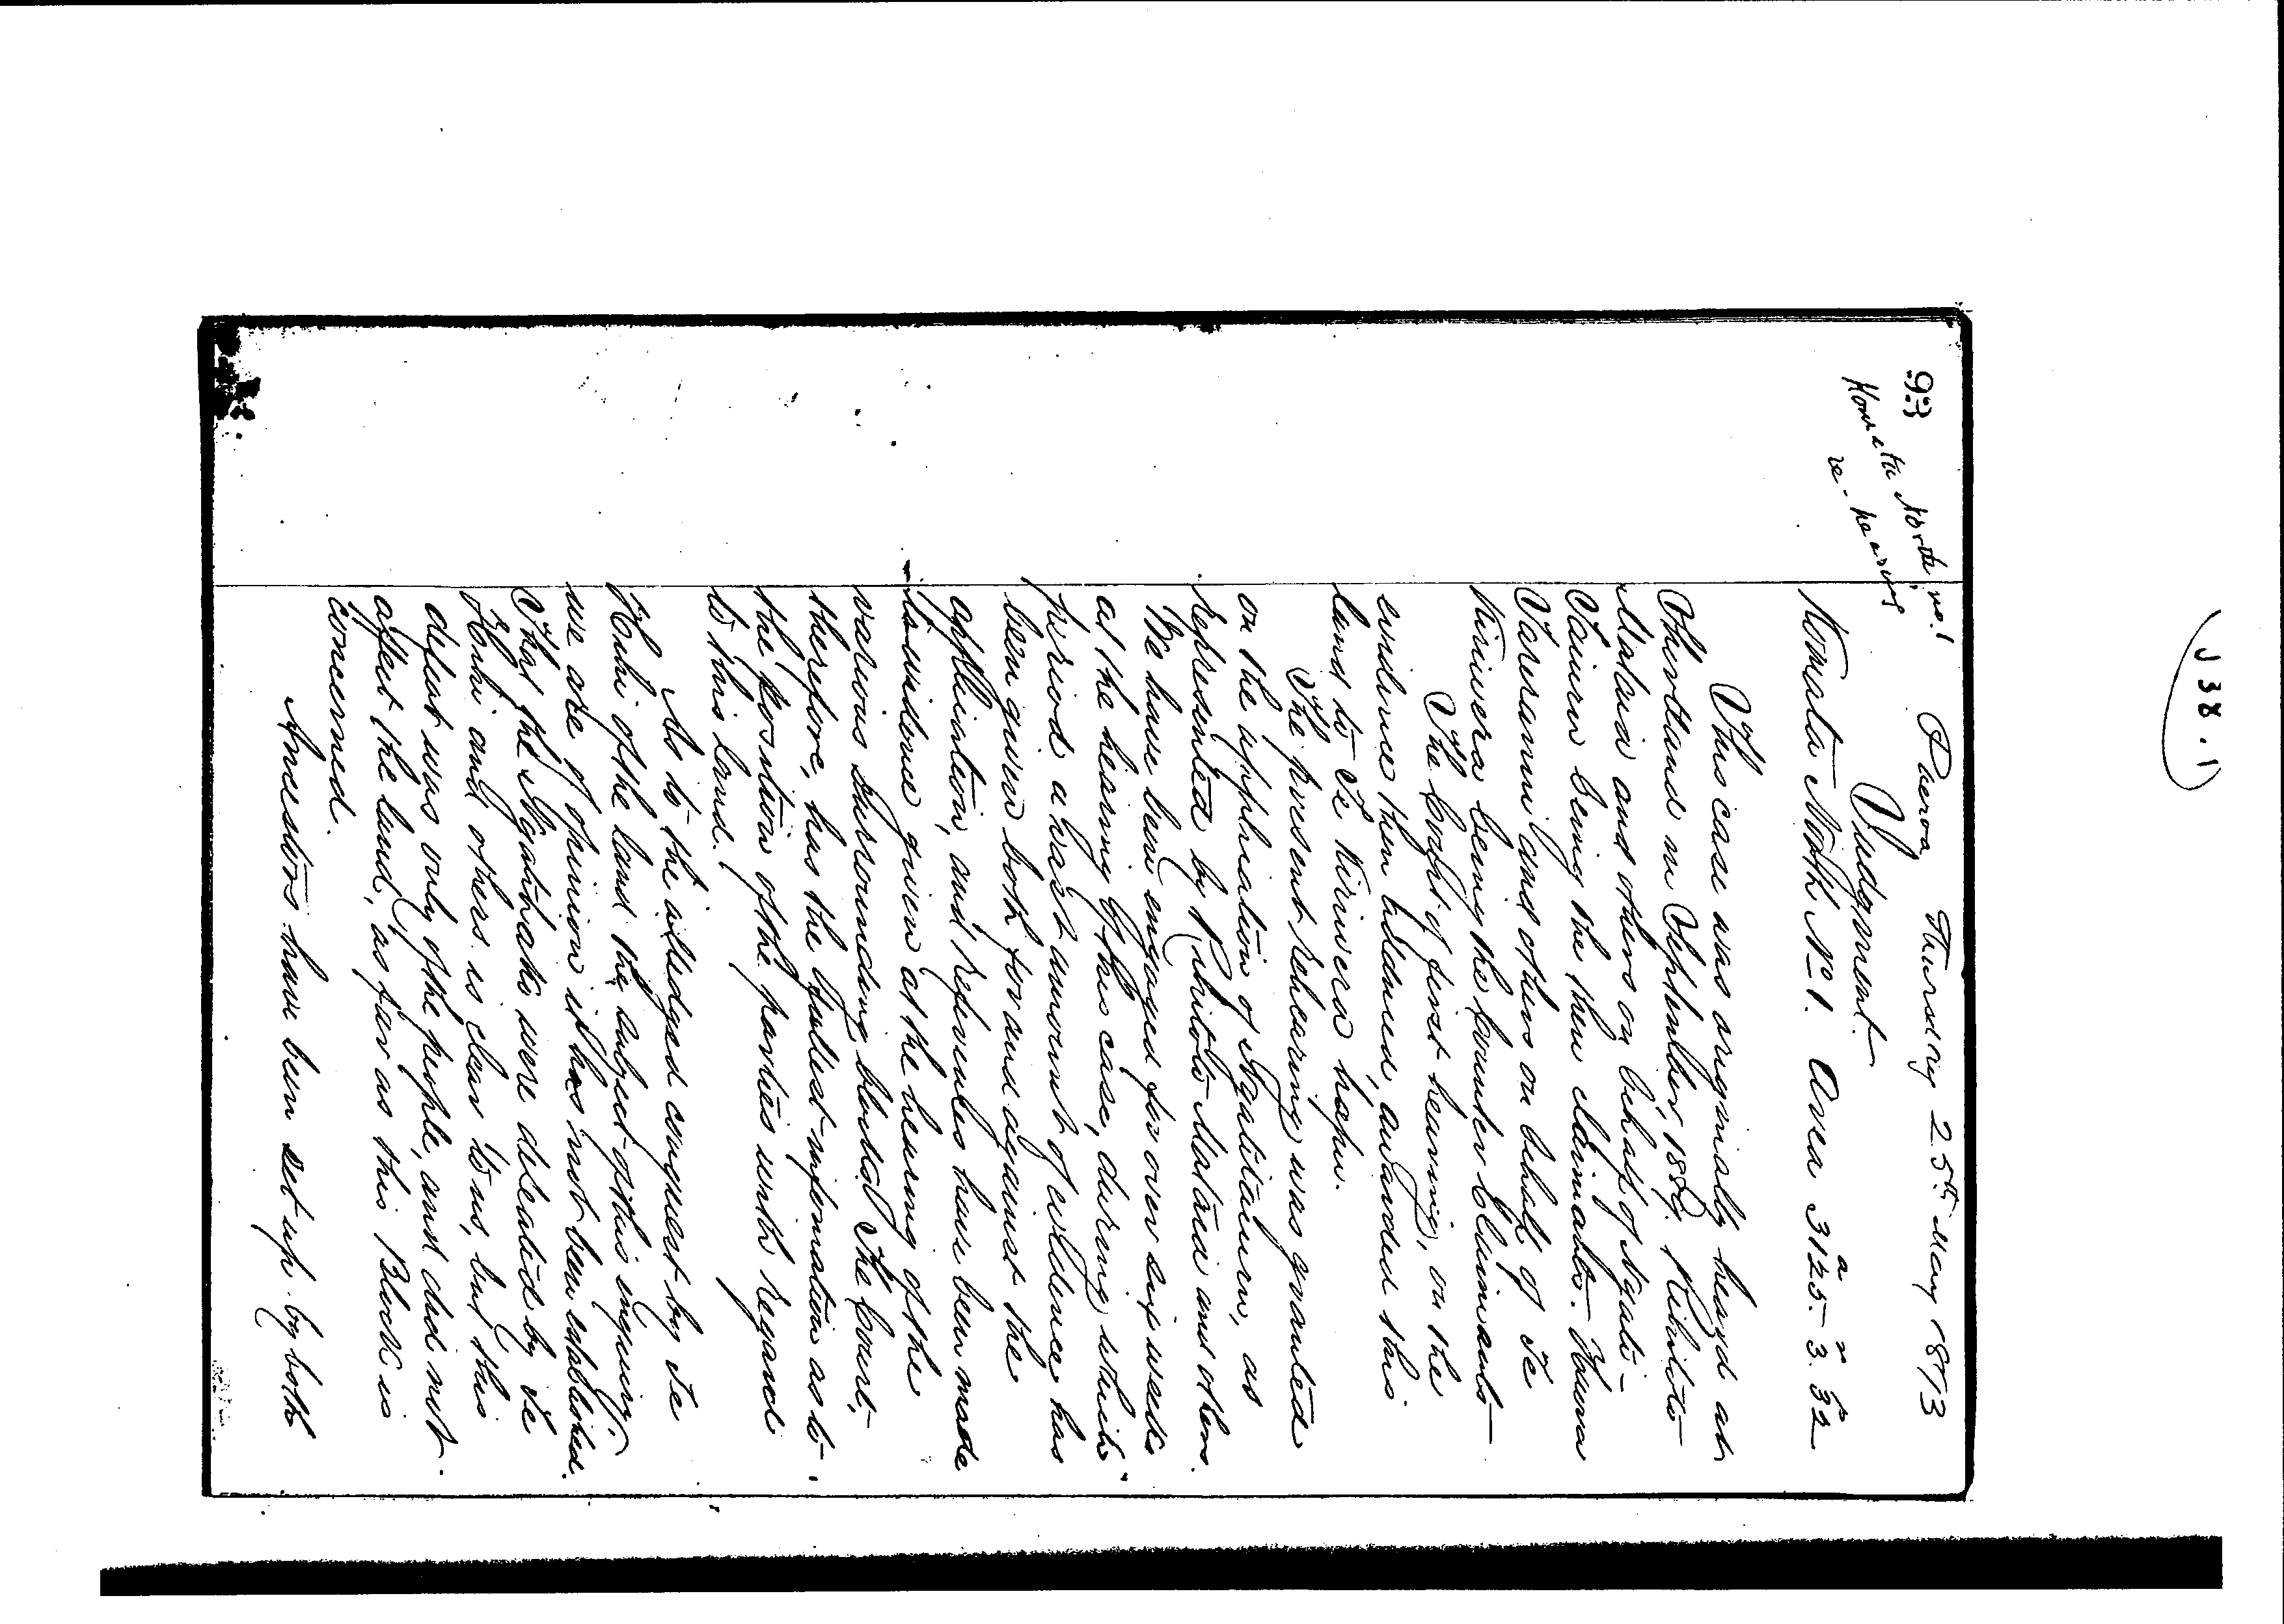 J 38.1
93
Komata North No 1
re-hearing
Paeroa Thursday 25th May 1893
Judgment.
Komata North No 1. Area 3125. 3. 32
a r p
This case was originally heard at
Shortland in September, 1889.
Mataia and others on behalf of Ngati-
Taiuru being the then claimants. Haora
Tareranui and others on behalf of Te
Kiriwera being the counter Claimants
The Court of first hearing, on the
evidence then adduced, awarded this
land to Te Kiriwera hapu.
The present rehearing was granted
on the application of Ngatitaiuru, as
represented by Mataia and others.
We have been engaged for over six weeks
at the hearing of this case, during which
period a vast amount of evidence has
been given both for and against the
application, and references have been made
to evidence given at the hearing of the
various surrounding blocks. The Court,
therefore, has the fullest information as to
the position of the parties with regard
to this land.
As to the alledged conquest by Te
Hihi of the land the subject of this inquiry
we are of opinion it has not been established.
That the were defeated by Te
Hihi and others is clear to us, but this
defeat was only of the people, and did not
affect the land, as far as this Block is
concerned.
Ancestors have been set up by both